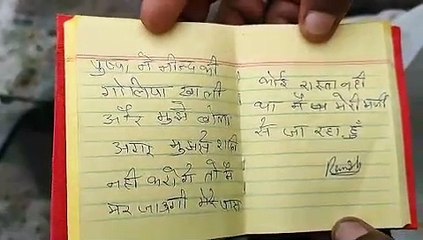 पुष्पा ने नीन्द की
गोलिया खा ली
और मुझे बोला
अगर मुझसे शादी
नही करोगे तो मैं
मर जाऊंगी मेरे पास
कोई रास्ता नही
था मैं अब मेरी मर्जी
से जा रहा हूँ